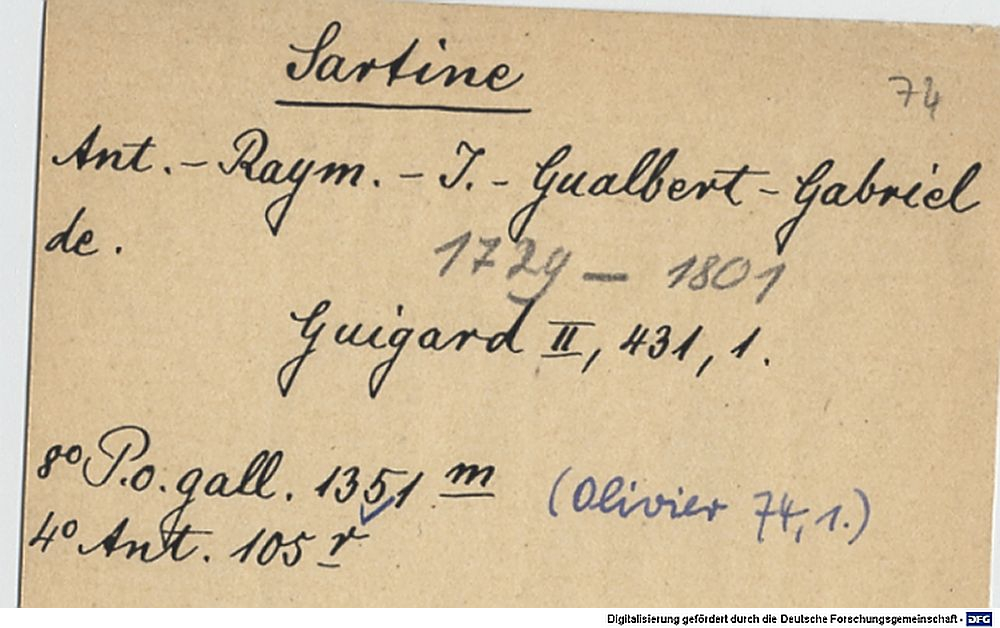 Sartine
74
Ant. - Raym. - J. - Gualbert - Gabriel
de.
1729 - 1801
Guigard II, 431, 1.
8° P.o. gall. 1351 m
(Olivier 74, 1.)
4° Ant. 105 r
Digitalisierung gefördert durch die Deutsche Forschungsgemeinschaft - DFG